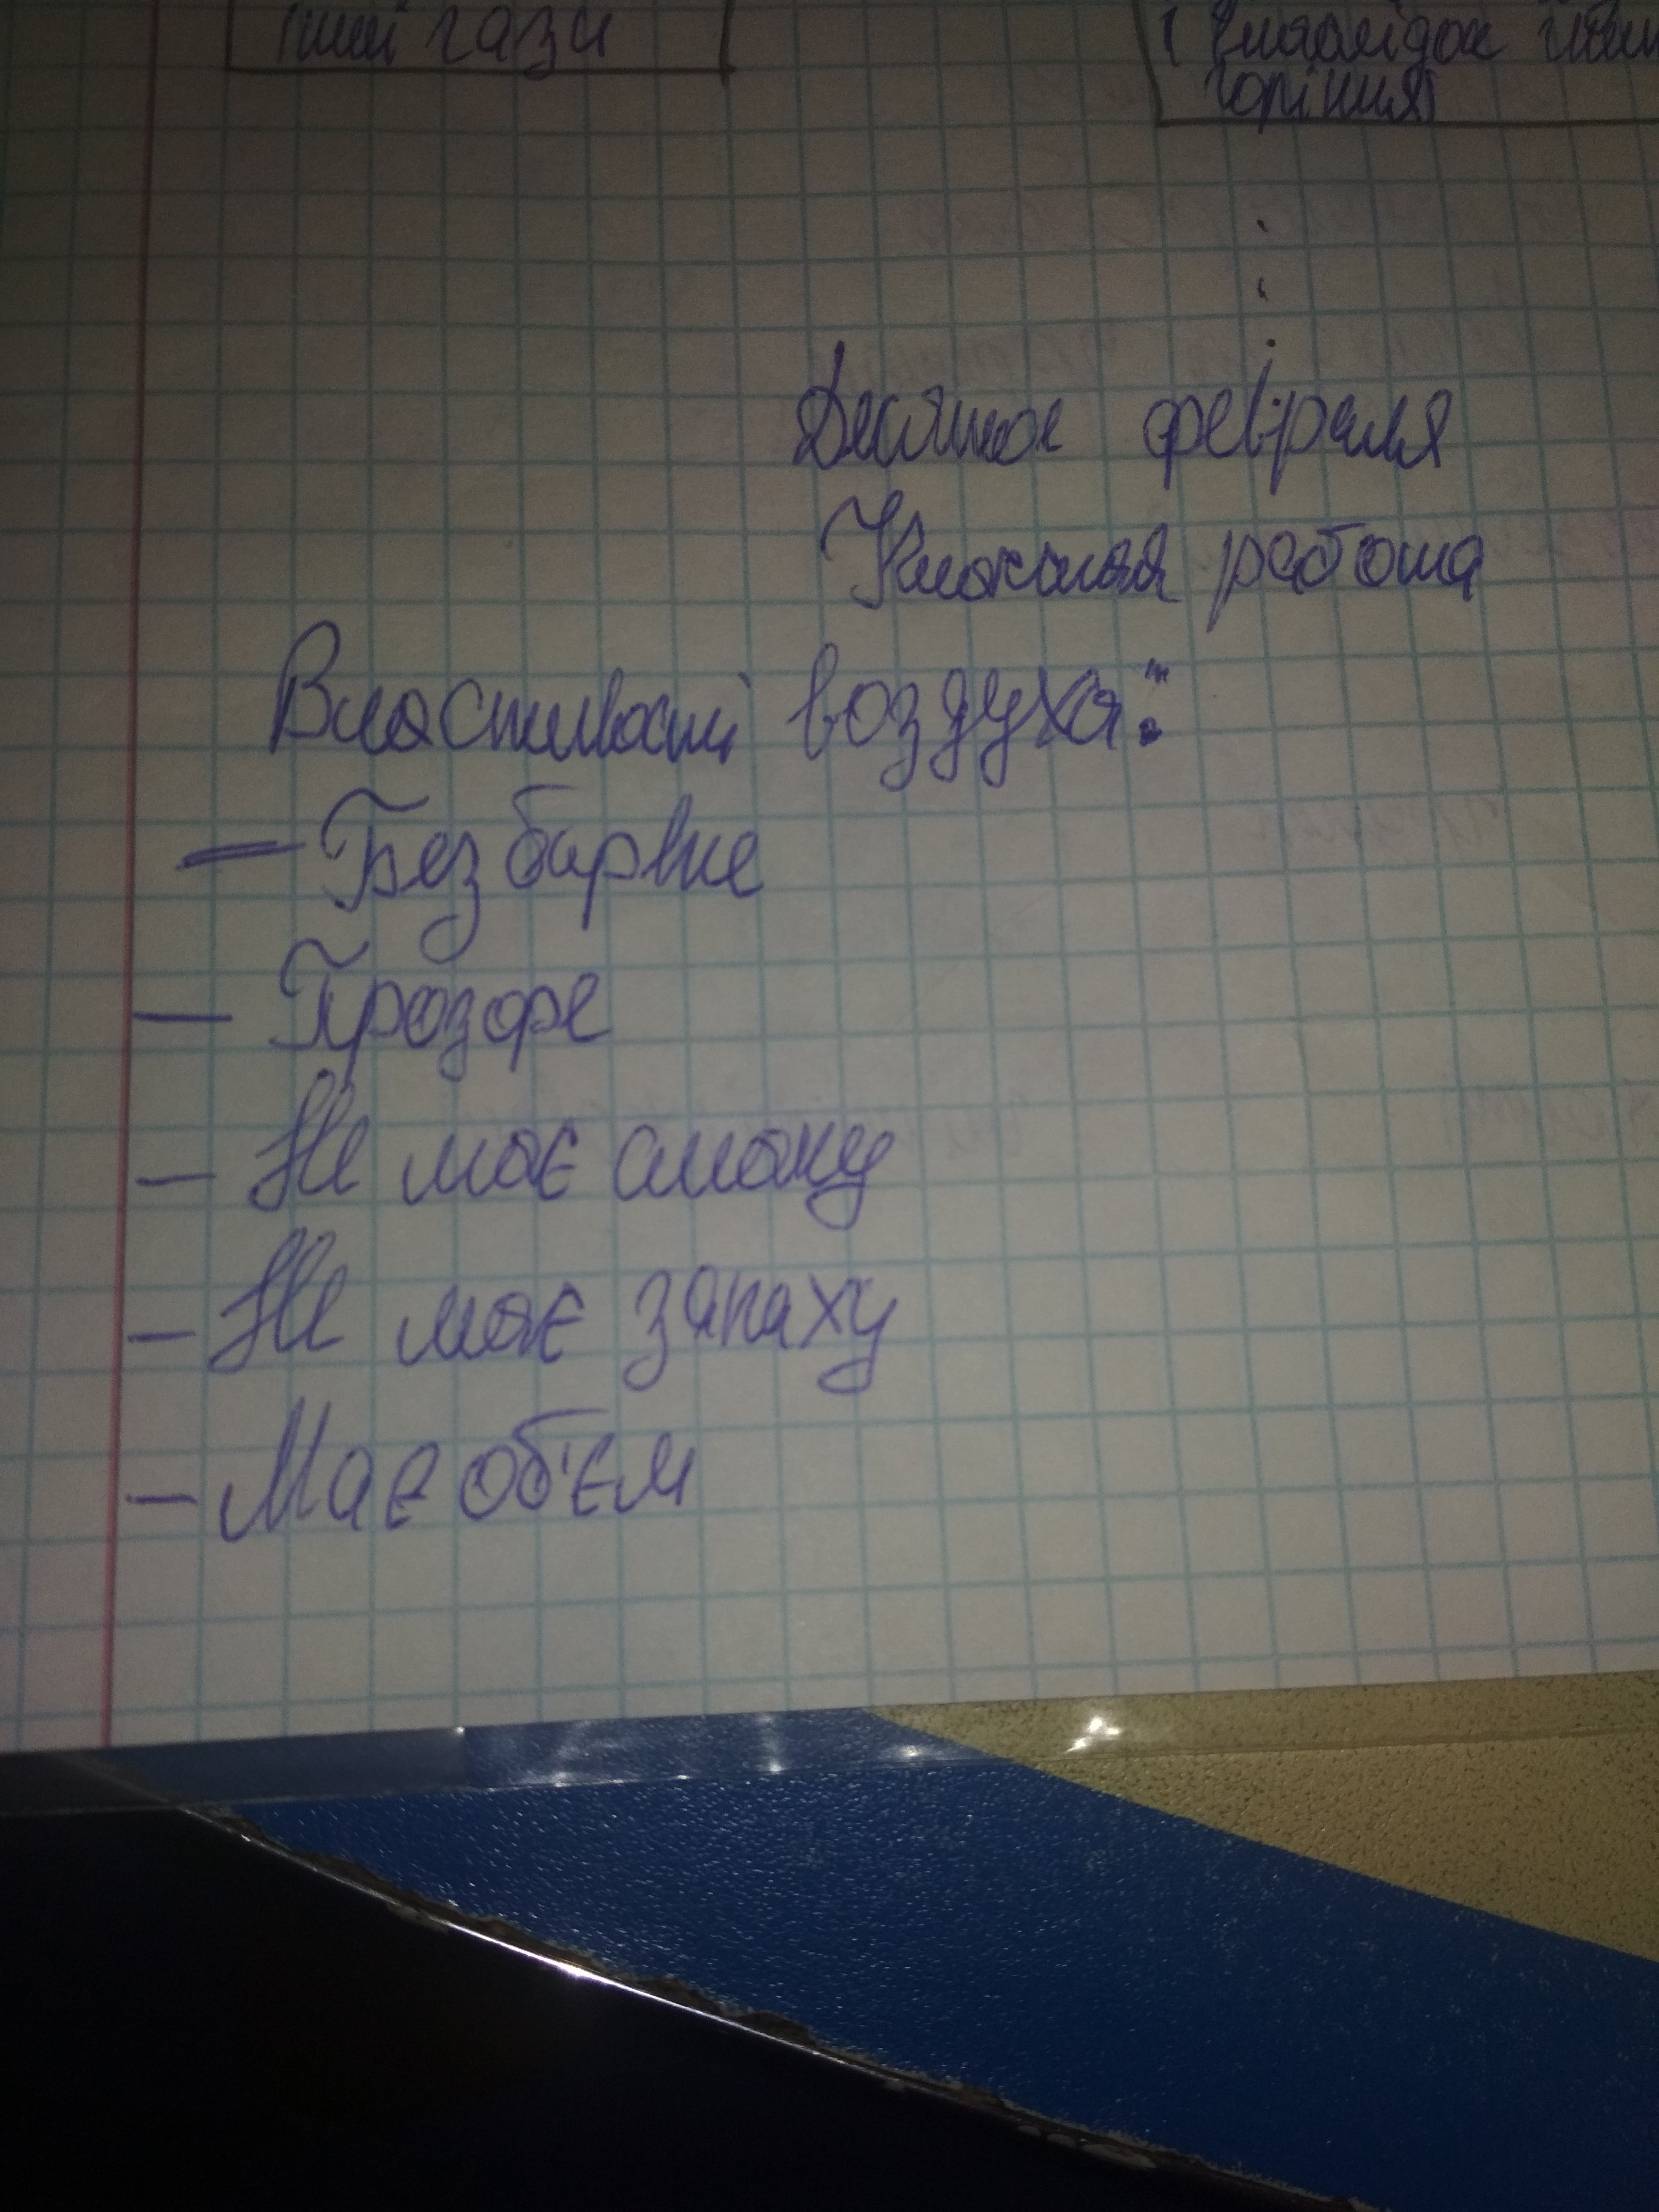 інші гази
внаслідок
горіння
Десятое февраля
Класная работа
Властивості воздуха:
— Безбарвне
— Прозоре
— Не має смаку
— Не має запаху
— Має об'єм